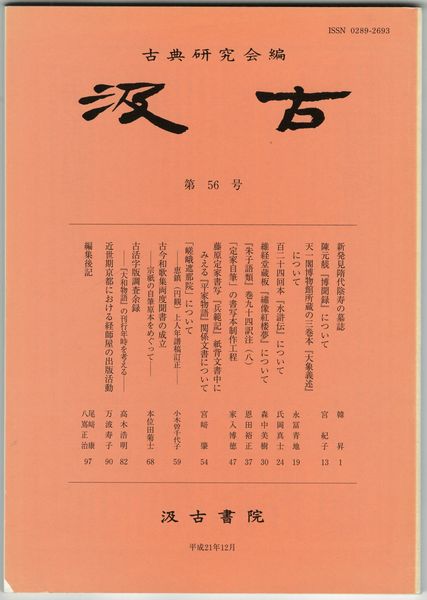 ISSN 0289-2693
古典研究会編
汲古
第 56 号
新発見隋代陰寿の墓誌 韓 昇 1
陳元靚『博聞録』について 宮 紀子 13
天一閣博物館所蔵の三巻本『大象義述』
について 永冨青地 19
百二十四回本『水滸伝』について 氏岡真士 24
維経堂蔵板『繡像紅楼夢』について 森中美樹 30
『朱子語類』巻九十四訳注(八) 恩田裕正 37
「定家自筆」の書写本制作工程 家入博徳 47
藤原定家書写『兵範記』紙背文書中に
みえる『平家物語』関係文書について 宮﨑 肇 54
「嵯峨遮那院」について
――恵鎮(円観)上人年譜稿訂正―― 小木曽千代子 59
古今和歌集両度聞書の成立
――宗祇の自筆原本をめぐって―― 本位田菊士 68
古活字版調査余録
――『大和物語』の刊行年時を考える―― 高木浩明 82
近世期京都における経師屋の出版活動 万波寿子 90
編集後記 尾崎 康
八嶌正治 97
汲古書院
平成21年12月